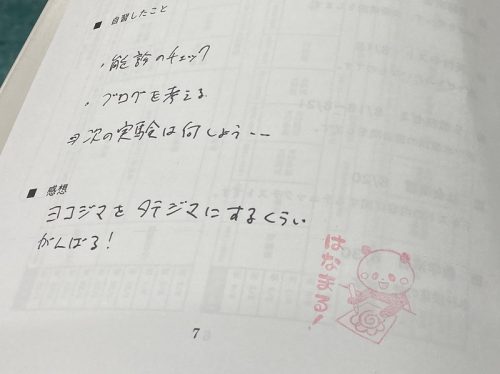 ■ 自習したこと
・能診のチェック
・ブログを考える
→次の実験は何しよう--
■ 感想
ヨコジマをタテジマにするくらい
がんばる!
7